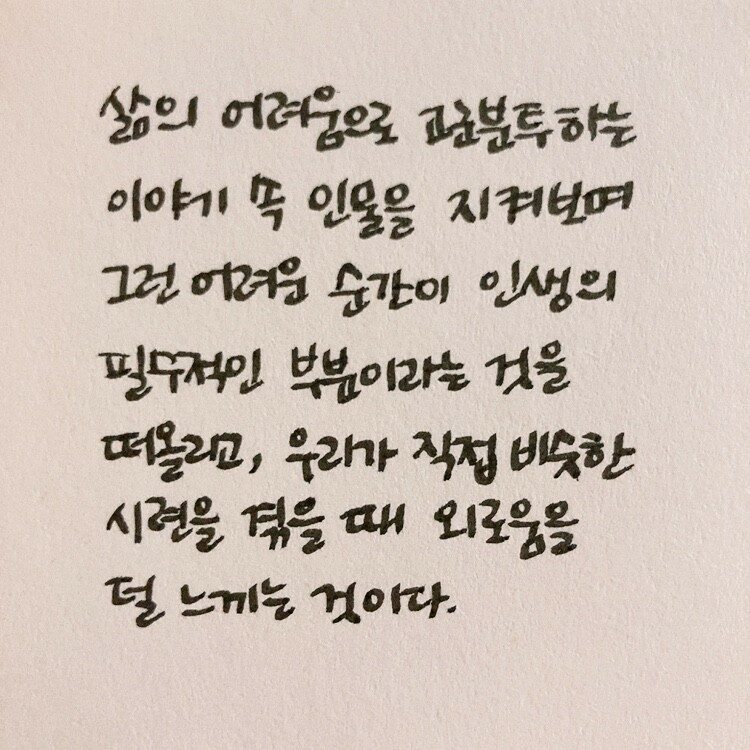 삶의 어려움으로 고군분투하는
이야기 속 인물을 지켜보며
그런 어려운 순간이 인생의
필수적인 부분이라는 것을
떠올리고, 우리가 직접 비슷한
시련을 겪을 때 외로움을
덜 느끼는 것이다.